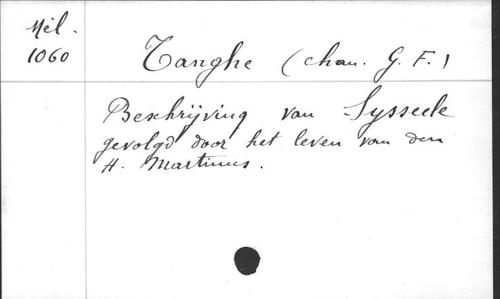 Mél.
1060
Tanghe (chan. G. F.)
Beschrijving van Sysseele
gevolgd door het leven van den
H. Martinus.